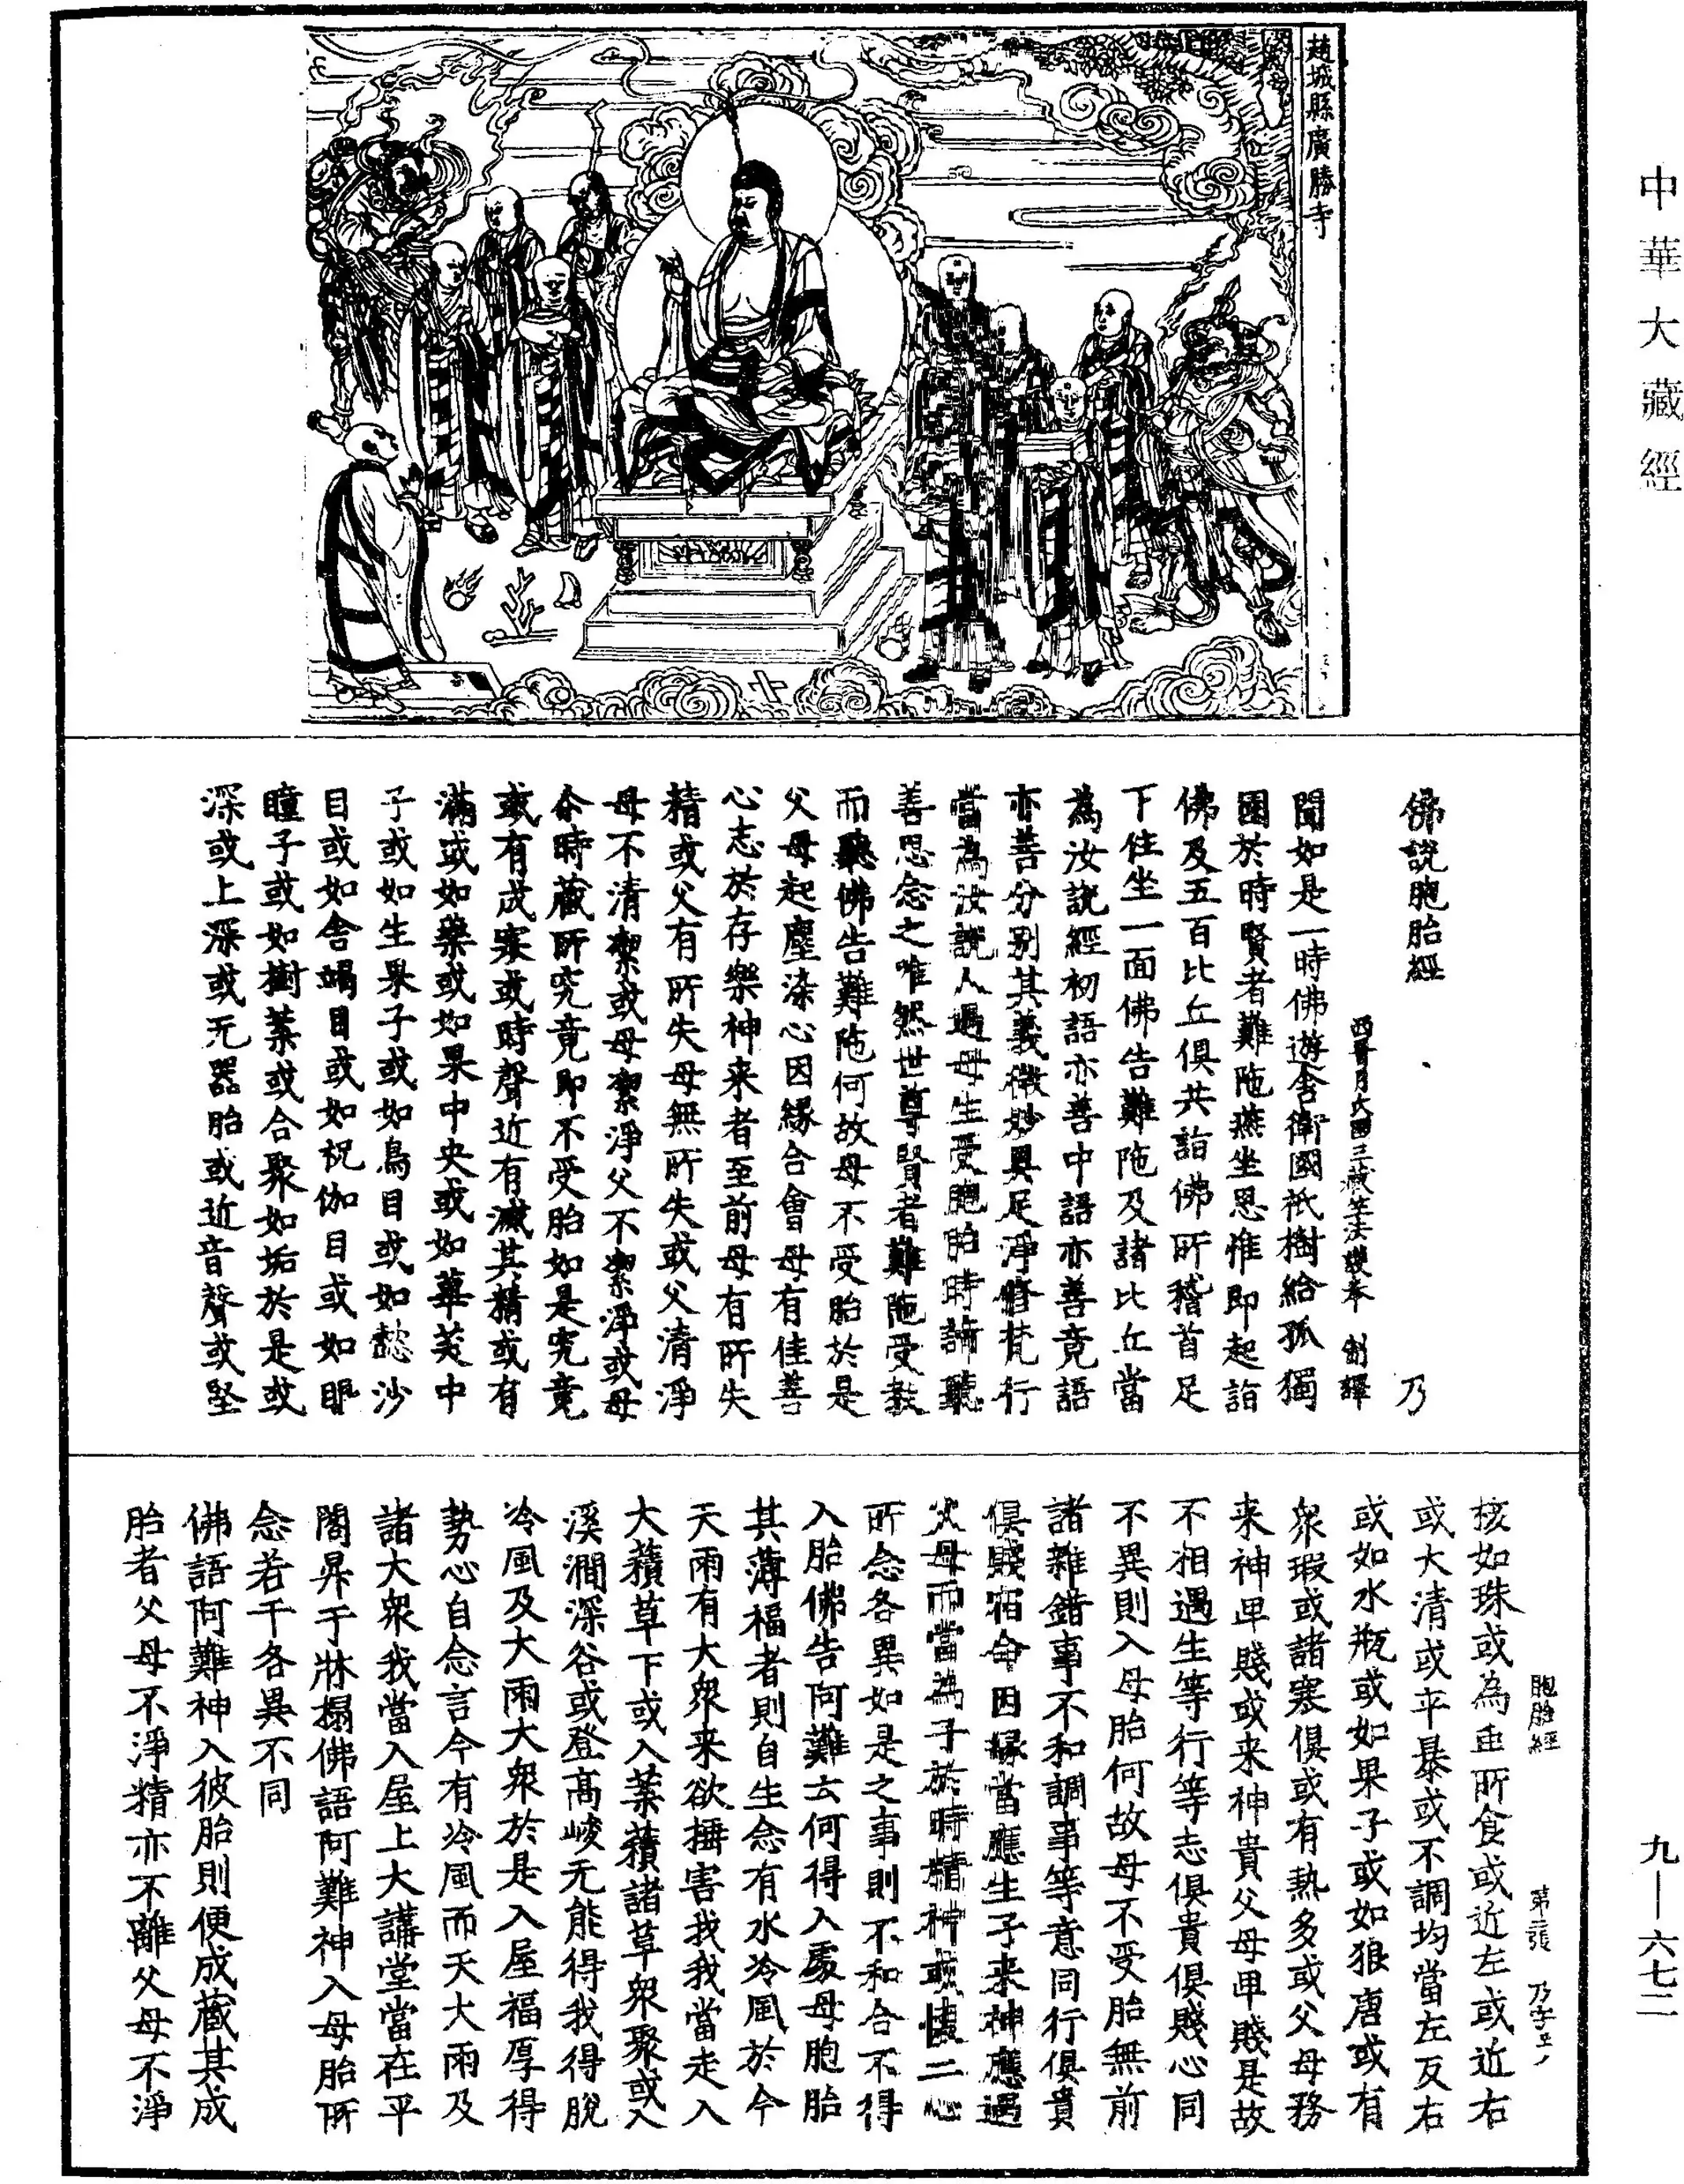 中華大藏經
趙城縣廣勝寺
佛說胞胎經 乃
西晉月氏國三藏竺法護奉 制譯
聞如是一時佛遊舍衛國祇樹給孤獨
園於時賢者難陁燕坐思惟即起詣
佛及五百比丘俱共詣佛所稽首足
下住坐一面佛告難陁及諸比丘當
為汝說經初語亦善中語亦善竟語
亦善分別其義微妙具足淨修梵行
當為汝說人遇母生受胞胎時諦聽
善思念之唯然世尊賢者難陁受教
而聽佛告難陁何故母不受胎於是
父母起塵染心因緣合會母有佳善
心志於存樂神来者至前母有所失
精或父有所失母無所失或父清淨
母不清潔或母潔淨父不潔淨或母
尒時藏所究竟即不受胎如是究竟
或有成寒或時聲近有滅其精或有
滿或如藥或如果中央或如蓽茇中
子或如生果子或如鳥目或如懿沙
目或如舍竭目或如祝伽目或如眼
瞳子或如樹葉或合聚如垢於是或
深或上深或无器胎或近音聲或堅
胞胎經 第二張 乃字号
核如珠或為虫所食或近左或近右
或大清或卒暴或不調均當左反右
或如水瓶或如果子或如狼唐或有
衆瑕或諸寒俱或有熱多或父母務
来神卑賤或来神貴父母卑賤是故
不相遇生等行等志俱貴俱賤心同
不異則入母胎何故母不受胎無前
諸雜錯事不和調事等意同行俱貴
俱賤宿命因緣當應生子来神應遇
父母而當為子於時精神或懷二心
所念各異如是之事則不和合不得
入胎佛告阿難云何得入處母胞胎
其薄福者則自生念有水冷風於今
天雨有大衆来欲捶害我我當走入
大𧂐草下或入葉𧂐諸草衆聚或入
溪澗深谷或登高峻无能得我得脫
冷風及大雨大衆於是入屋福厚得
勢心自念言今有冷風而天大雨及
諸大衆我當入屋上大講堂當在平
閣昇于牀榻佛語阿難神入母胎所
念若干各異不同
佛語阿難神入彼胎則便成藏其成
胎者父母不淨精亦不離父母不淨
九—六七二